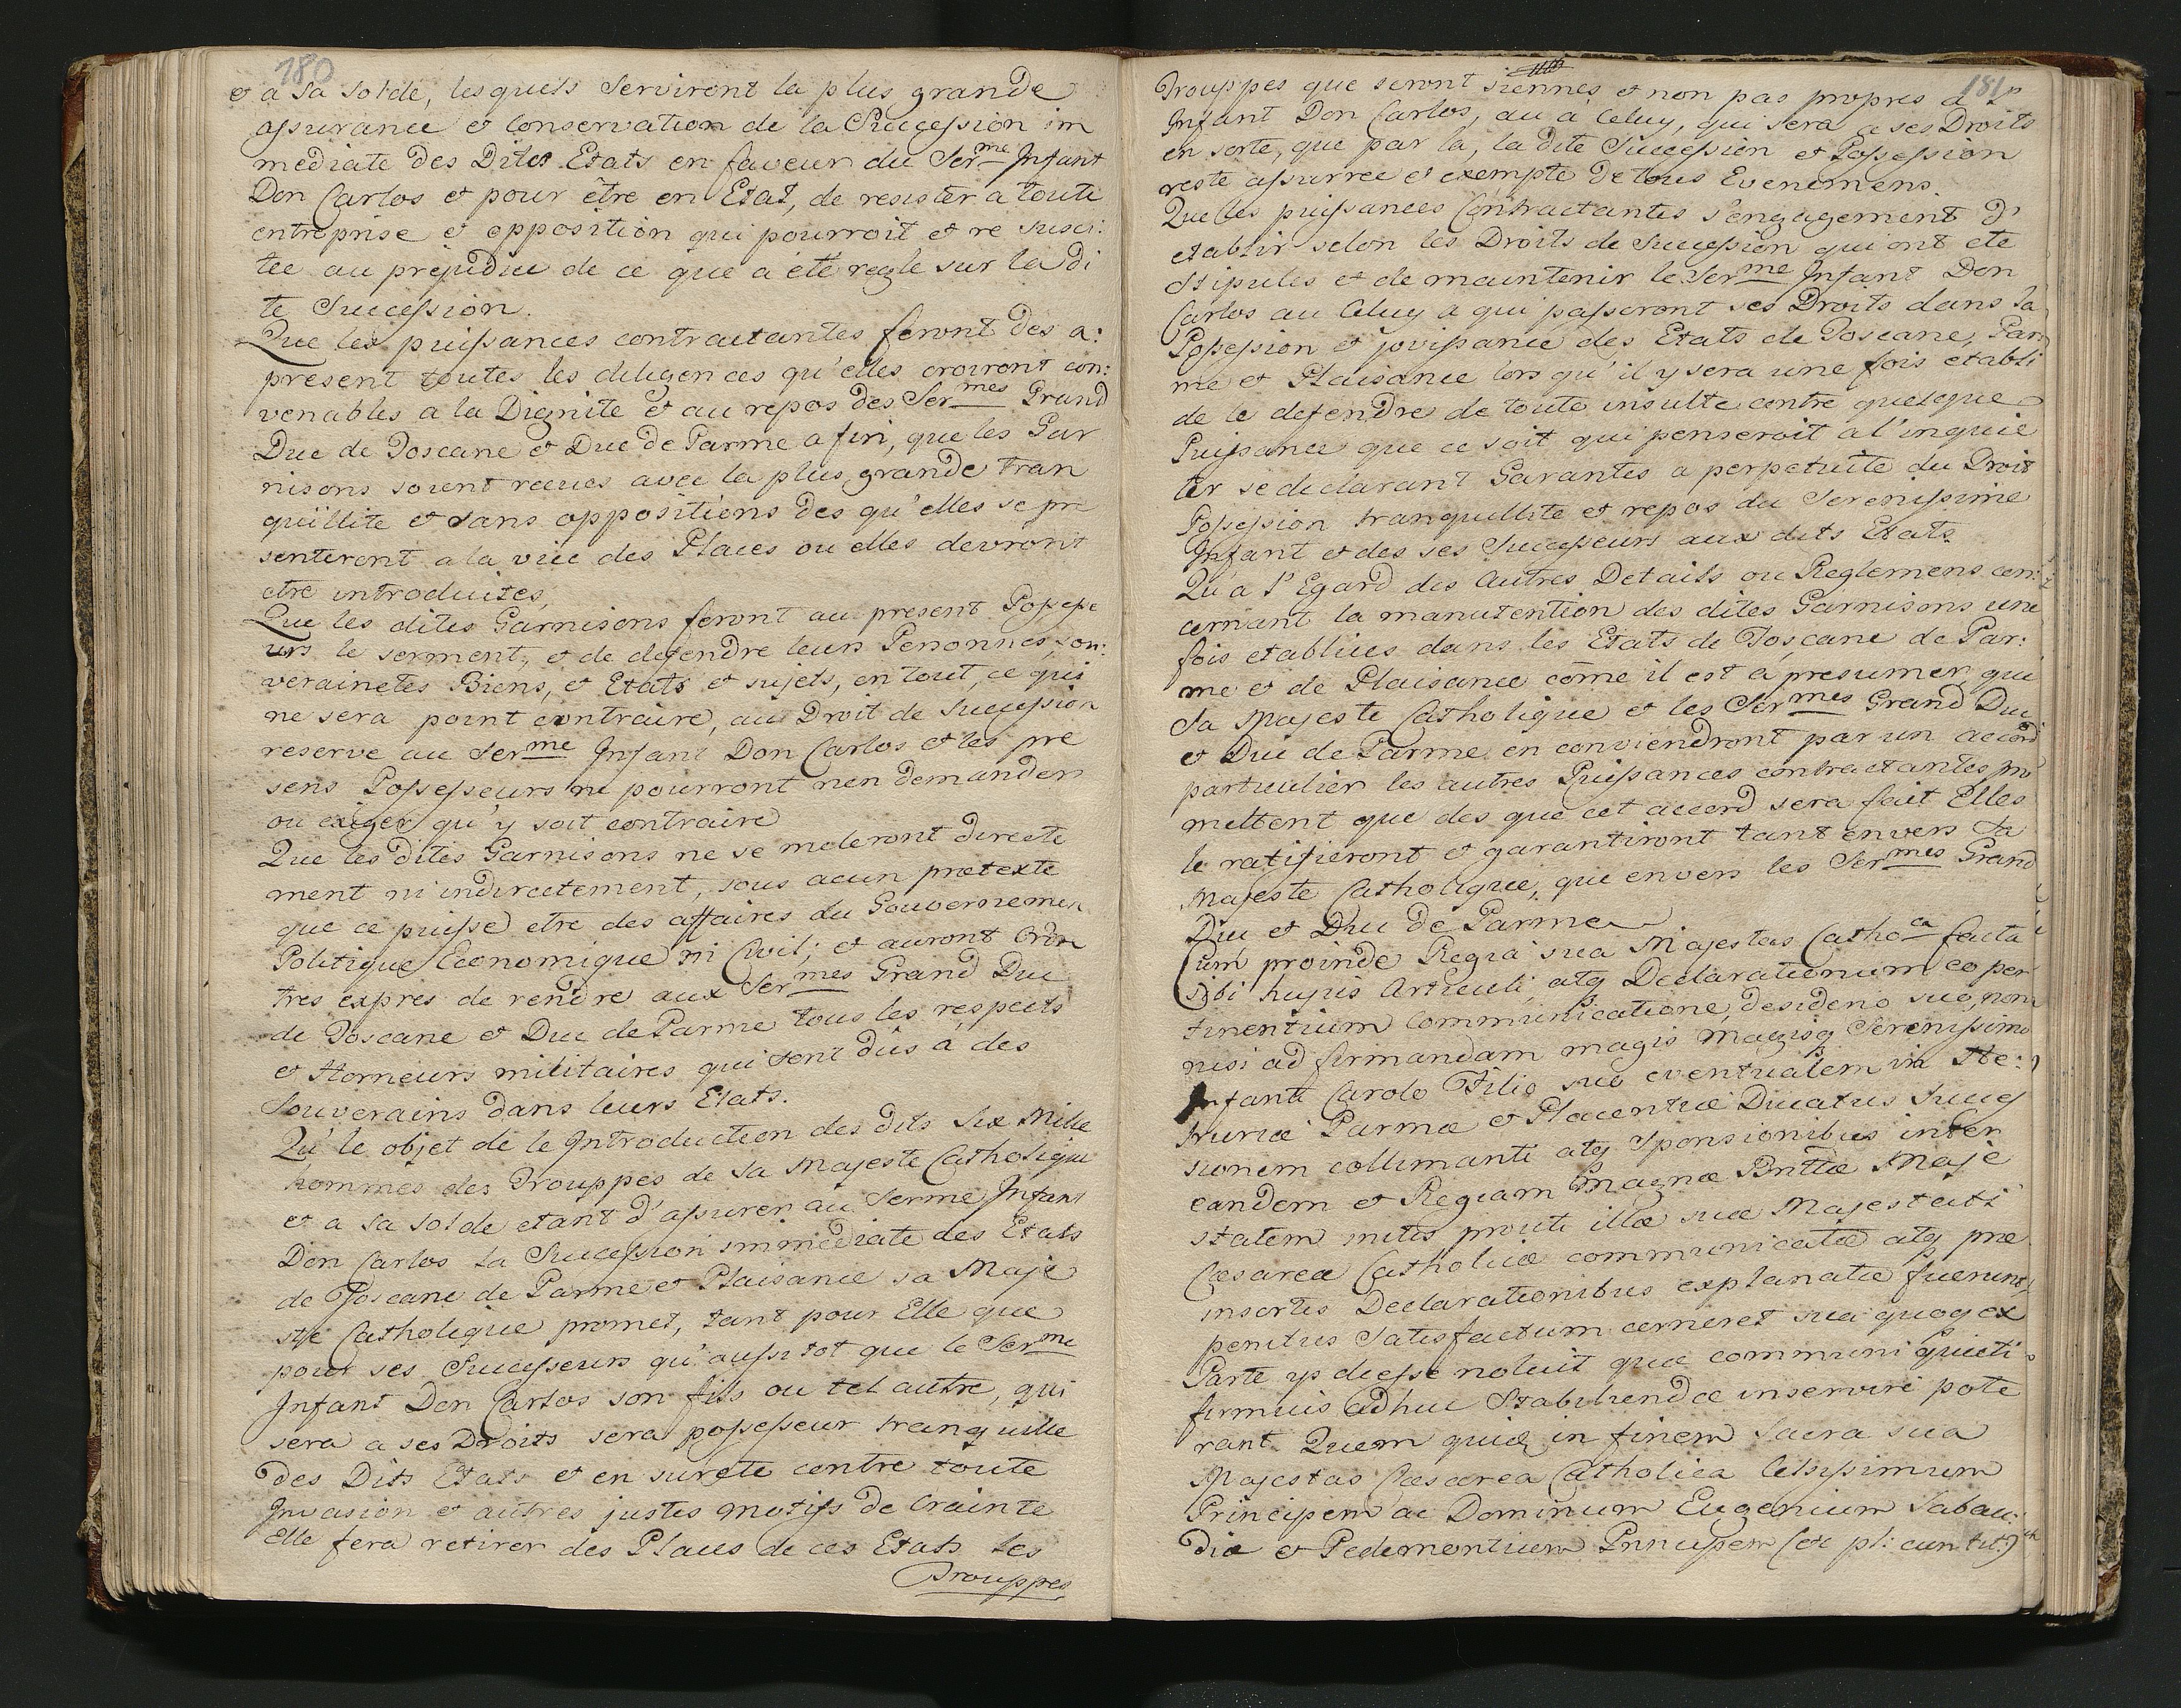 180
et a sa solde, lesquels Serviront la plus grande
assurance et Conservation de la Succession im
mediate des Dites Etats en faveur du Ser.me Infant
Don Carlos et pour être en Etat, de resister a toute
entreprise et opposition qui pourroit et re susci:
tée au prejudice de ce que a été reglé sur la di
te Succession.
Que les puissances contractantes feront des a:
present toutes les diligences qu'elles croiront con:
venables a la Dignite et au repos des Ser.mes Grand
Duc de Toscane et Duc de Parme a fin, que les Gar
nisons soient recues avec la plus grande tran
quillite et sans oppositions des qu'elles se pre
senteront a la vüe des Places ou elles devront
etre introduites,
Que les dites Garnisons feront au present Possess
urs le serment, et de defendre leurs Personnes, sou:
verainetes Biens, et Etats et sujets, en tout, ce qui
ne sera point contraire, au Droit de Succession
reserve au Ser.me Infant Don Carlos et les pre
sens Possesseurs ne pourront rien demander
ou exiger qu'y soit contraire
Que les dites Garnisons ne se meleront directe
ment ni indirectement, sous acun pretexte
que ce puisse etre des affaires du Gouvernemen
Politique Economique ni Civil; et auront Ordre
tres expres de rendre aux Ser.mes Grand Duc
de Toscane et Duc de Parme tous les respects
et Honneurs militaires qui sont dûs a des
Souverains dans leurs Etats.
Qu' le objet de le Introduction des dits Six Mille
hommes des Trouppes de sa Majeste Catholique
et a sa solde etant d'assurer au Serme Infant
Don Carlos la Succession immediate des Etats
de Toscane de Parme et Plaisance sa Maje
ste Catholique promet, tant pour Elle que
pour ses Successeurs qu'aussitot que le Ser.me
Infant Don Carlos son fils ou tel autre, qui
sera a ses Droits sera possesseur tranquille
des Dits Etats et en sureté contre toute
Invasion et autres justes motifs de Crainte
Elle fera retirer des Places de ces Etats les
Trouppes
181
Trouppes que seront siennes et non pas propres a l'
Infant Don Carlos, au à Celuy, qui sera a ses Droits
en sorte, que par la, la dite Succession et Possession
reste assurrée et exempte de tous Evenemens.
Que les puissances Contractantes s'engagement d'
etablir selon les Droits de Succession qui ont ete
stipules et de maintenir le Ser.me Infant Don
Carlos au Celuy a qui passeront ses Droits dans la
Possession et jovissance des Etats de Toscane, Par
me et Plaisance lors qu'il y sera une fois etabli
de le defendre de toute insulte contre quelque
Puissance que ce soit qui penseroit a l'inquie
ter se declarant Garantes a perpetuite du Droit
Possession tranquillite et repos du Serenissime
Infant et des ses Successeurs aux dits Etats.
Qu a l'Egard des Autres Details ou Reglemens con:
cernant la manutention des dites Garnisons une
fois etablies dans les Etats de Toscane de Par:
me et de Plaisance cōme il est a presumer que
Sa Majeste Catholique et les Ser.mes Grand Duc
et Duc de Parme en conviendront par un accord
particulier les autres Puissances contractantes pro
mettent que des que cet accord sera fait Elles
le ratifieront et garantiront tant envers Sa
Majeste Catholique, que envers les Ser.mes Grand
Duc et Duc de Parme
Cum proinde Regia sua Majestas Catho.ca facta
sibi hujus Articuli, atq Declarationum eo per
tinentium Communicatione, desiderio suo, non
nisi ad firmandam magis magisq Serenissimo
Infanti Carolo Filio suo eventualem in He:
truriæ Parmæ et Placentiæ Ducatus Succes
sionem collimanti atq sponsionibus inter
eandem et Regiam Magnæ Brittæ Maje
statem initis prouti illæ suæ Majestati
Cæsareæ Catholicæ communicatæ atq præ
insertis Declarationibus explanatæ fuerunt,
penitus Satisfactum cerneret sua quoq ex
Parte ys deesse noluit quæ communi quieti
firmius adhuc Stabiliendæ inservire pote
rant. Quem quidẽ in finem Sacra sua
Majestas Cæsarea Catholica Celsissimum
Principem ac Dominum Eugenium Sabau:
diæ et Pedemontium Principem (et pl: cun tit:)